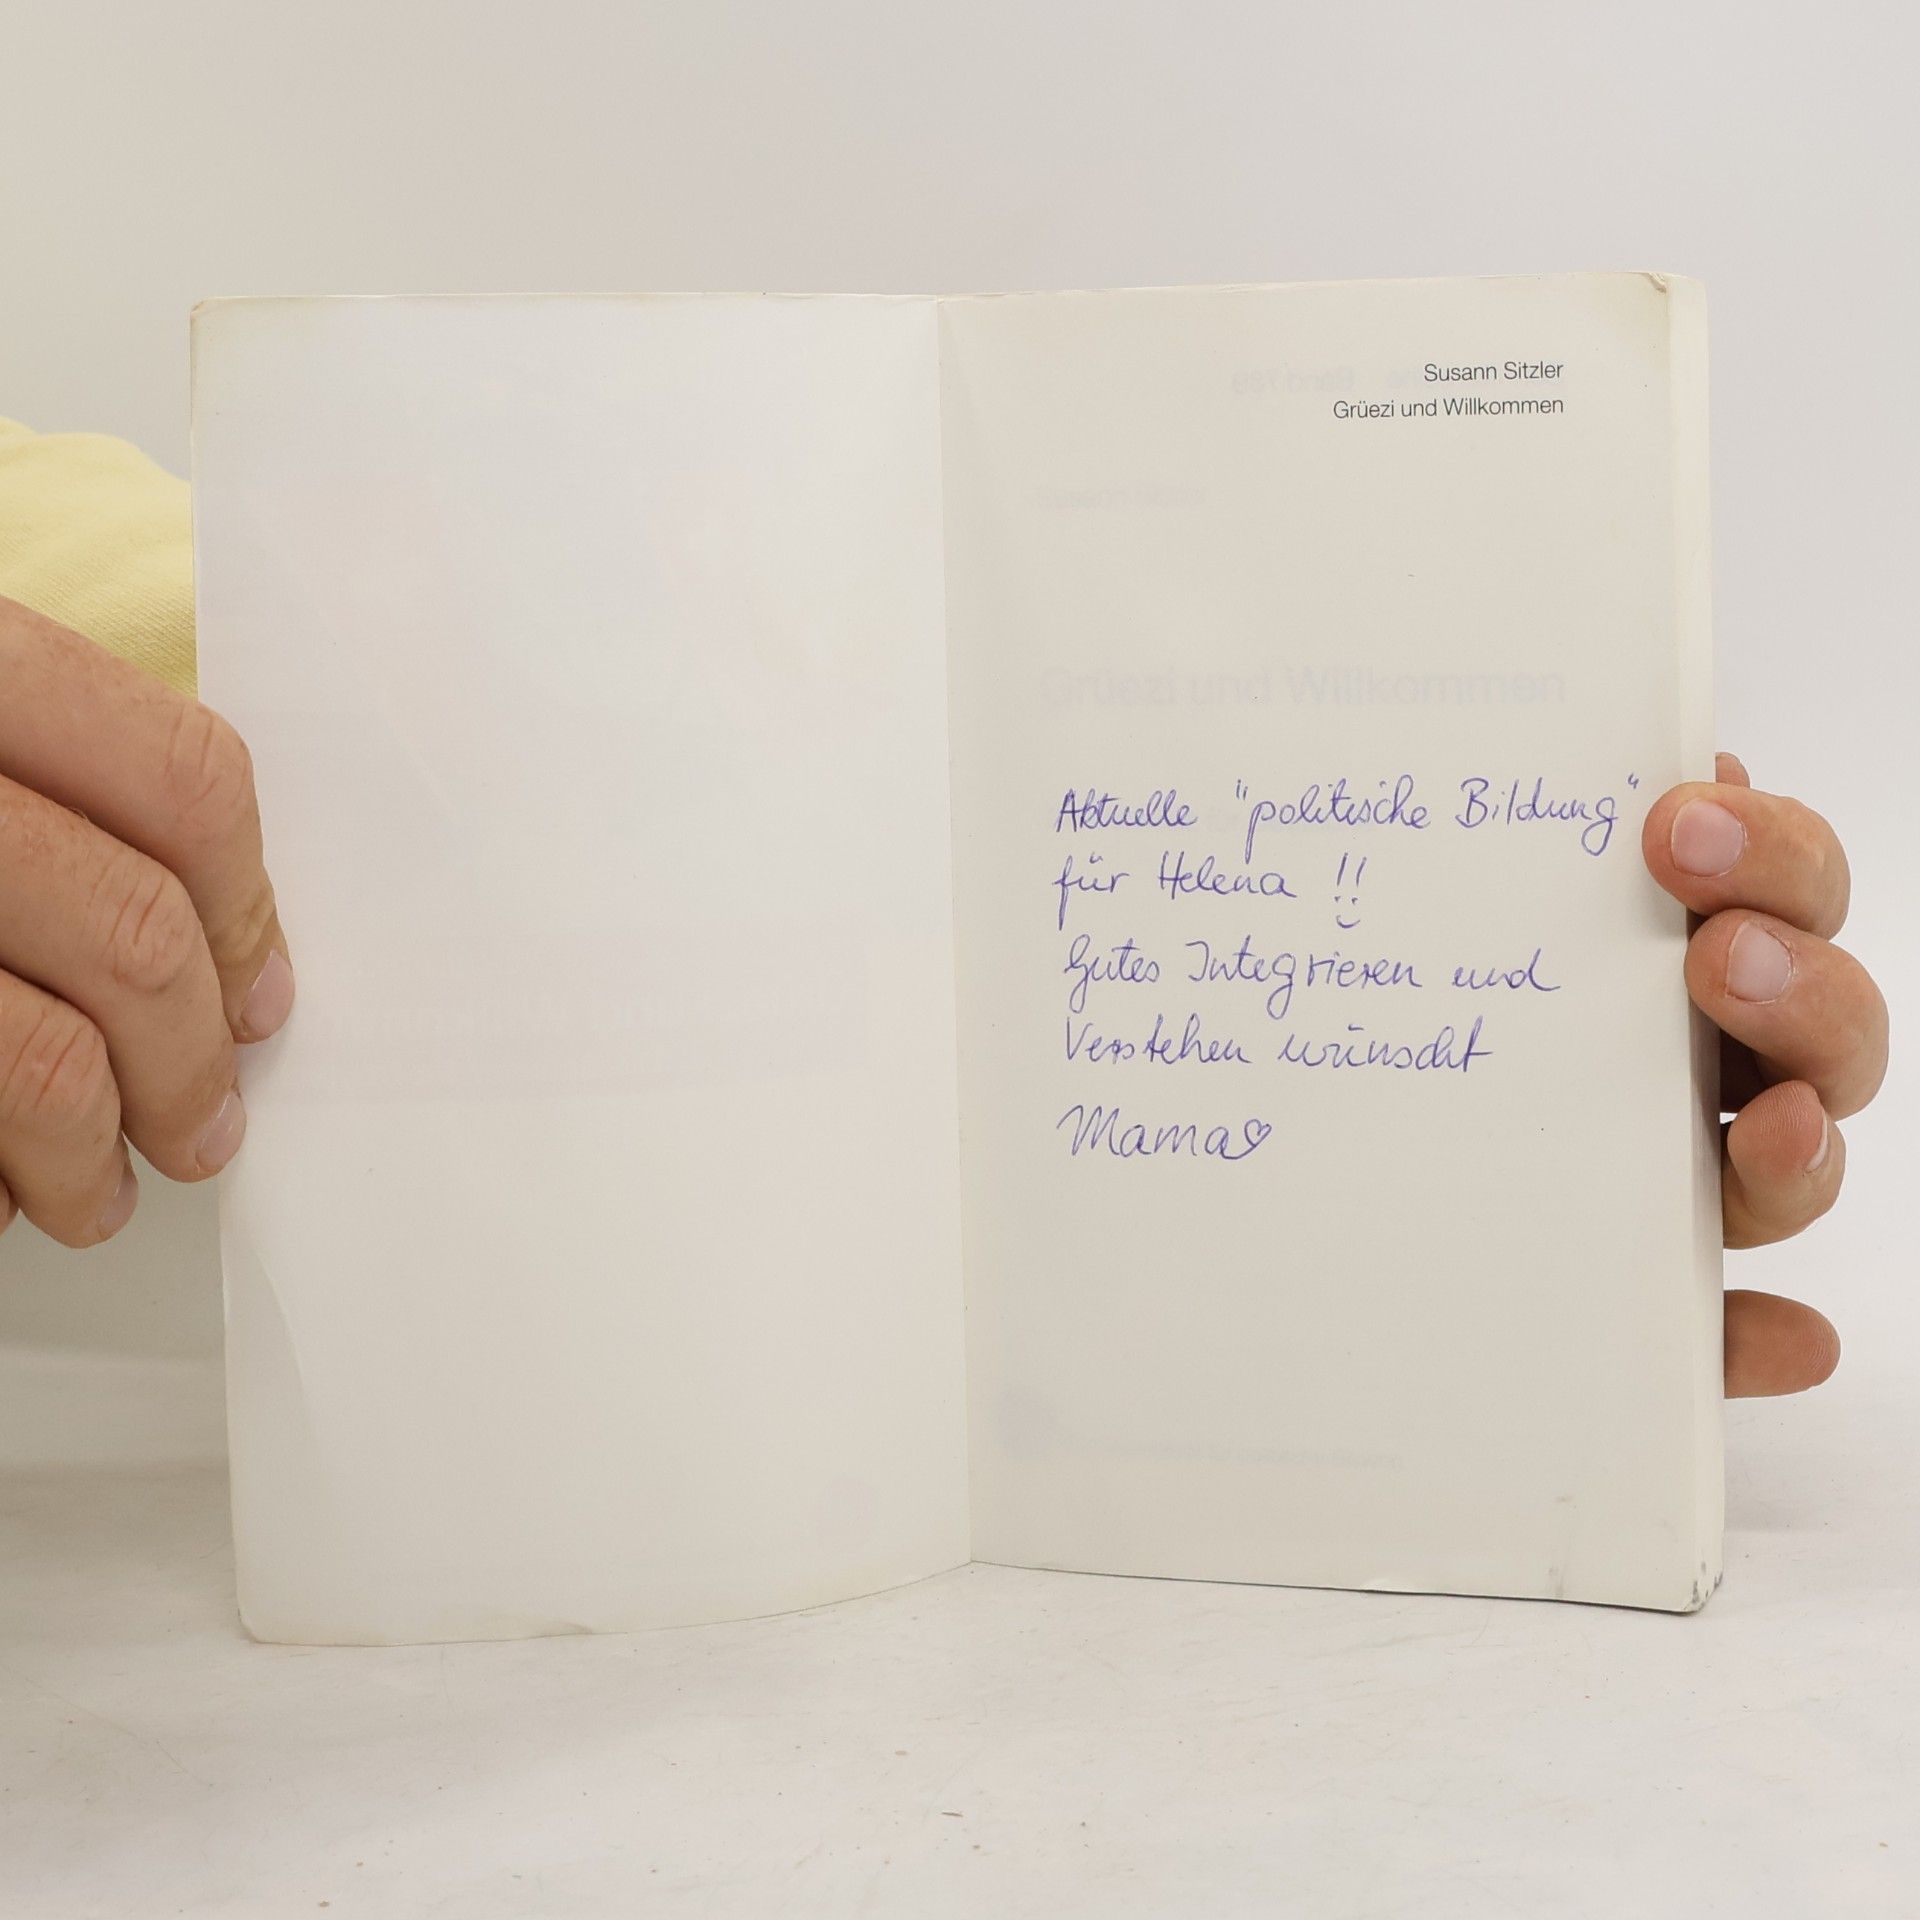 Susann Sitzler
Grüezi und Willkommen
Grüezi und Willkommen
Aktuelle "politische Bildung"
für Helena !!
Gutes Integrieren und
Verstehen wünscht
Mama♡